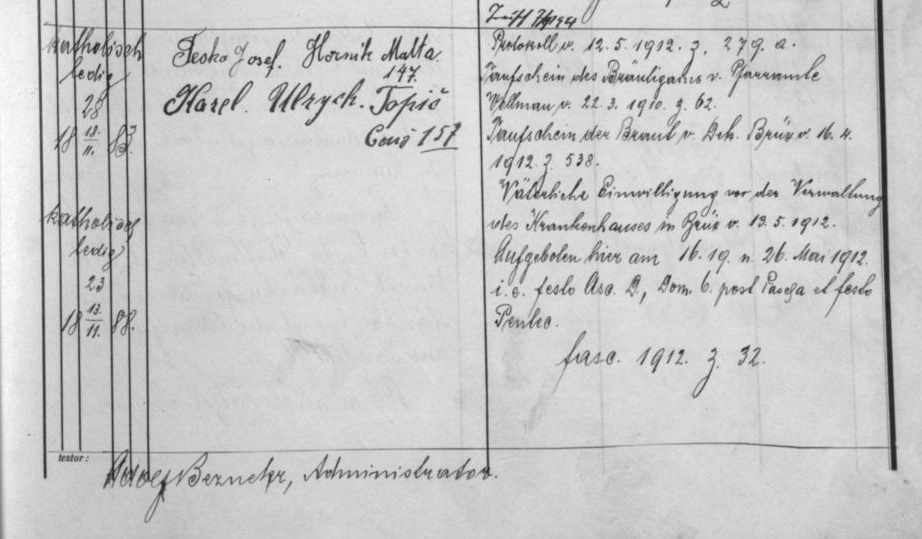 katholisch
ledig
28
18 18./11. 83.
katholisch
ledig
23
18 13./11. 88.
Teska Josef. Horník Malta.
147.
Karel Ulrych. Topič
Čouš 157
Protokoll v. 12.5.1912. z. 279. a.
Taufschein des Bräutigams v. Pfarramte
v. 22.3.1910. z. 62.
Taufschein der Braut v. Dek. Brüx v. 16.4.
1912. z. 538.
Väterliche Einwilligung vor der Verwaltung
des Krankenhauses in Brüx v. 13.5.1912.
Aufgeboten hier am 16. 19. u. 26. Mai 1912.
i. e. festo Asc. D., Dom. 6. post Pascha et festo
Pentec.
fasc. 1912. z. 32.
testor:
Administrator.